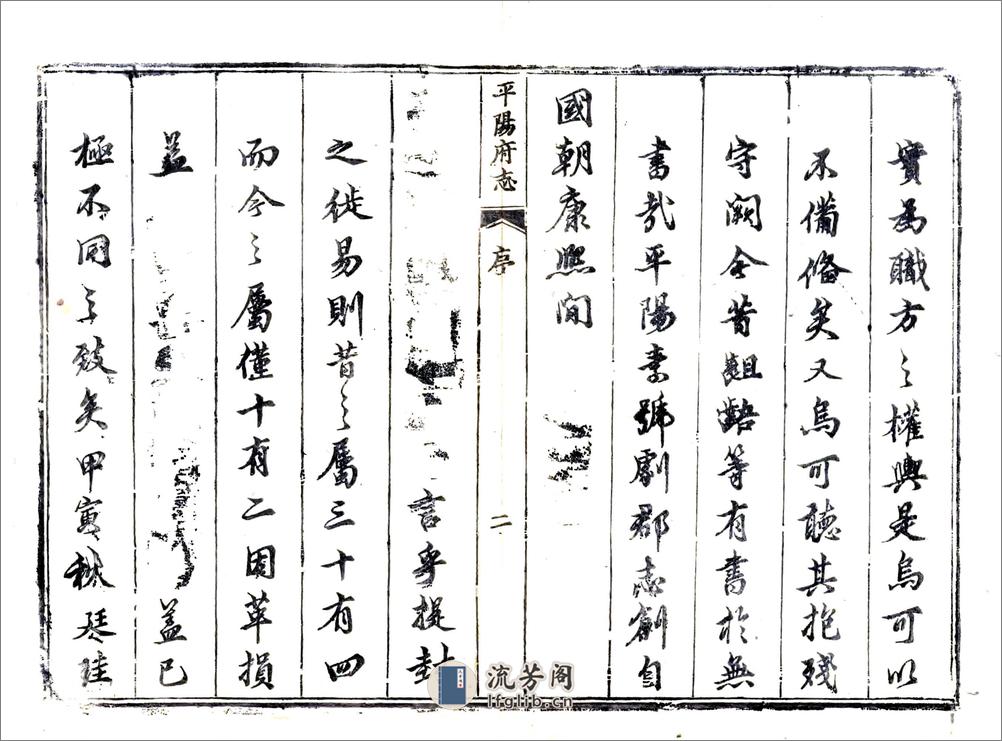 實為職方之權輿是烏可以
不備脩矣又烏可聽其抱殘
守闕令昔齟齬等有書於無
書哉平陽素號劇郡志創自
國朝康熙間
平陽府志 序 二
言乎提封
之徙易則昔之屬三十有四
而今之屬僅十有二因革損
益 蓋已
極不同之致矣甲寅秋琴珪
流芳阁
lfglib.cn